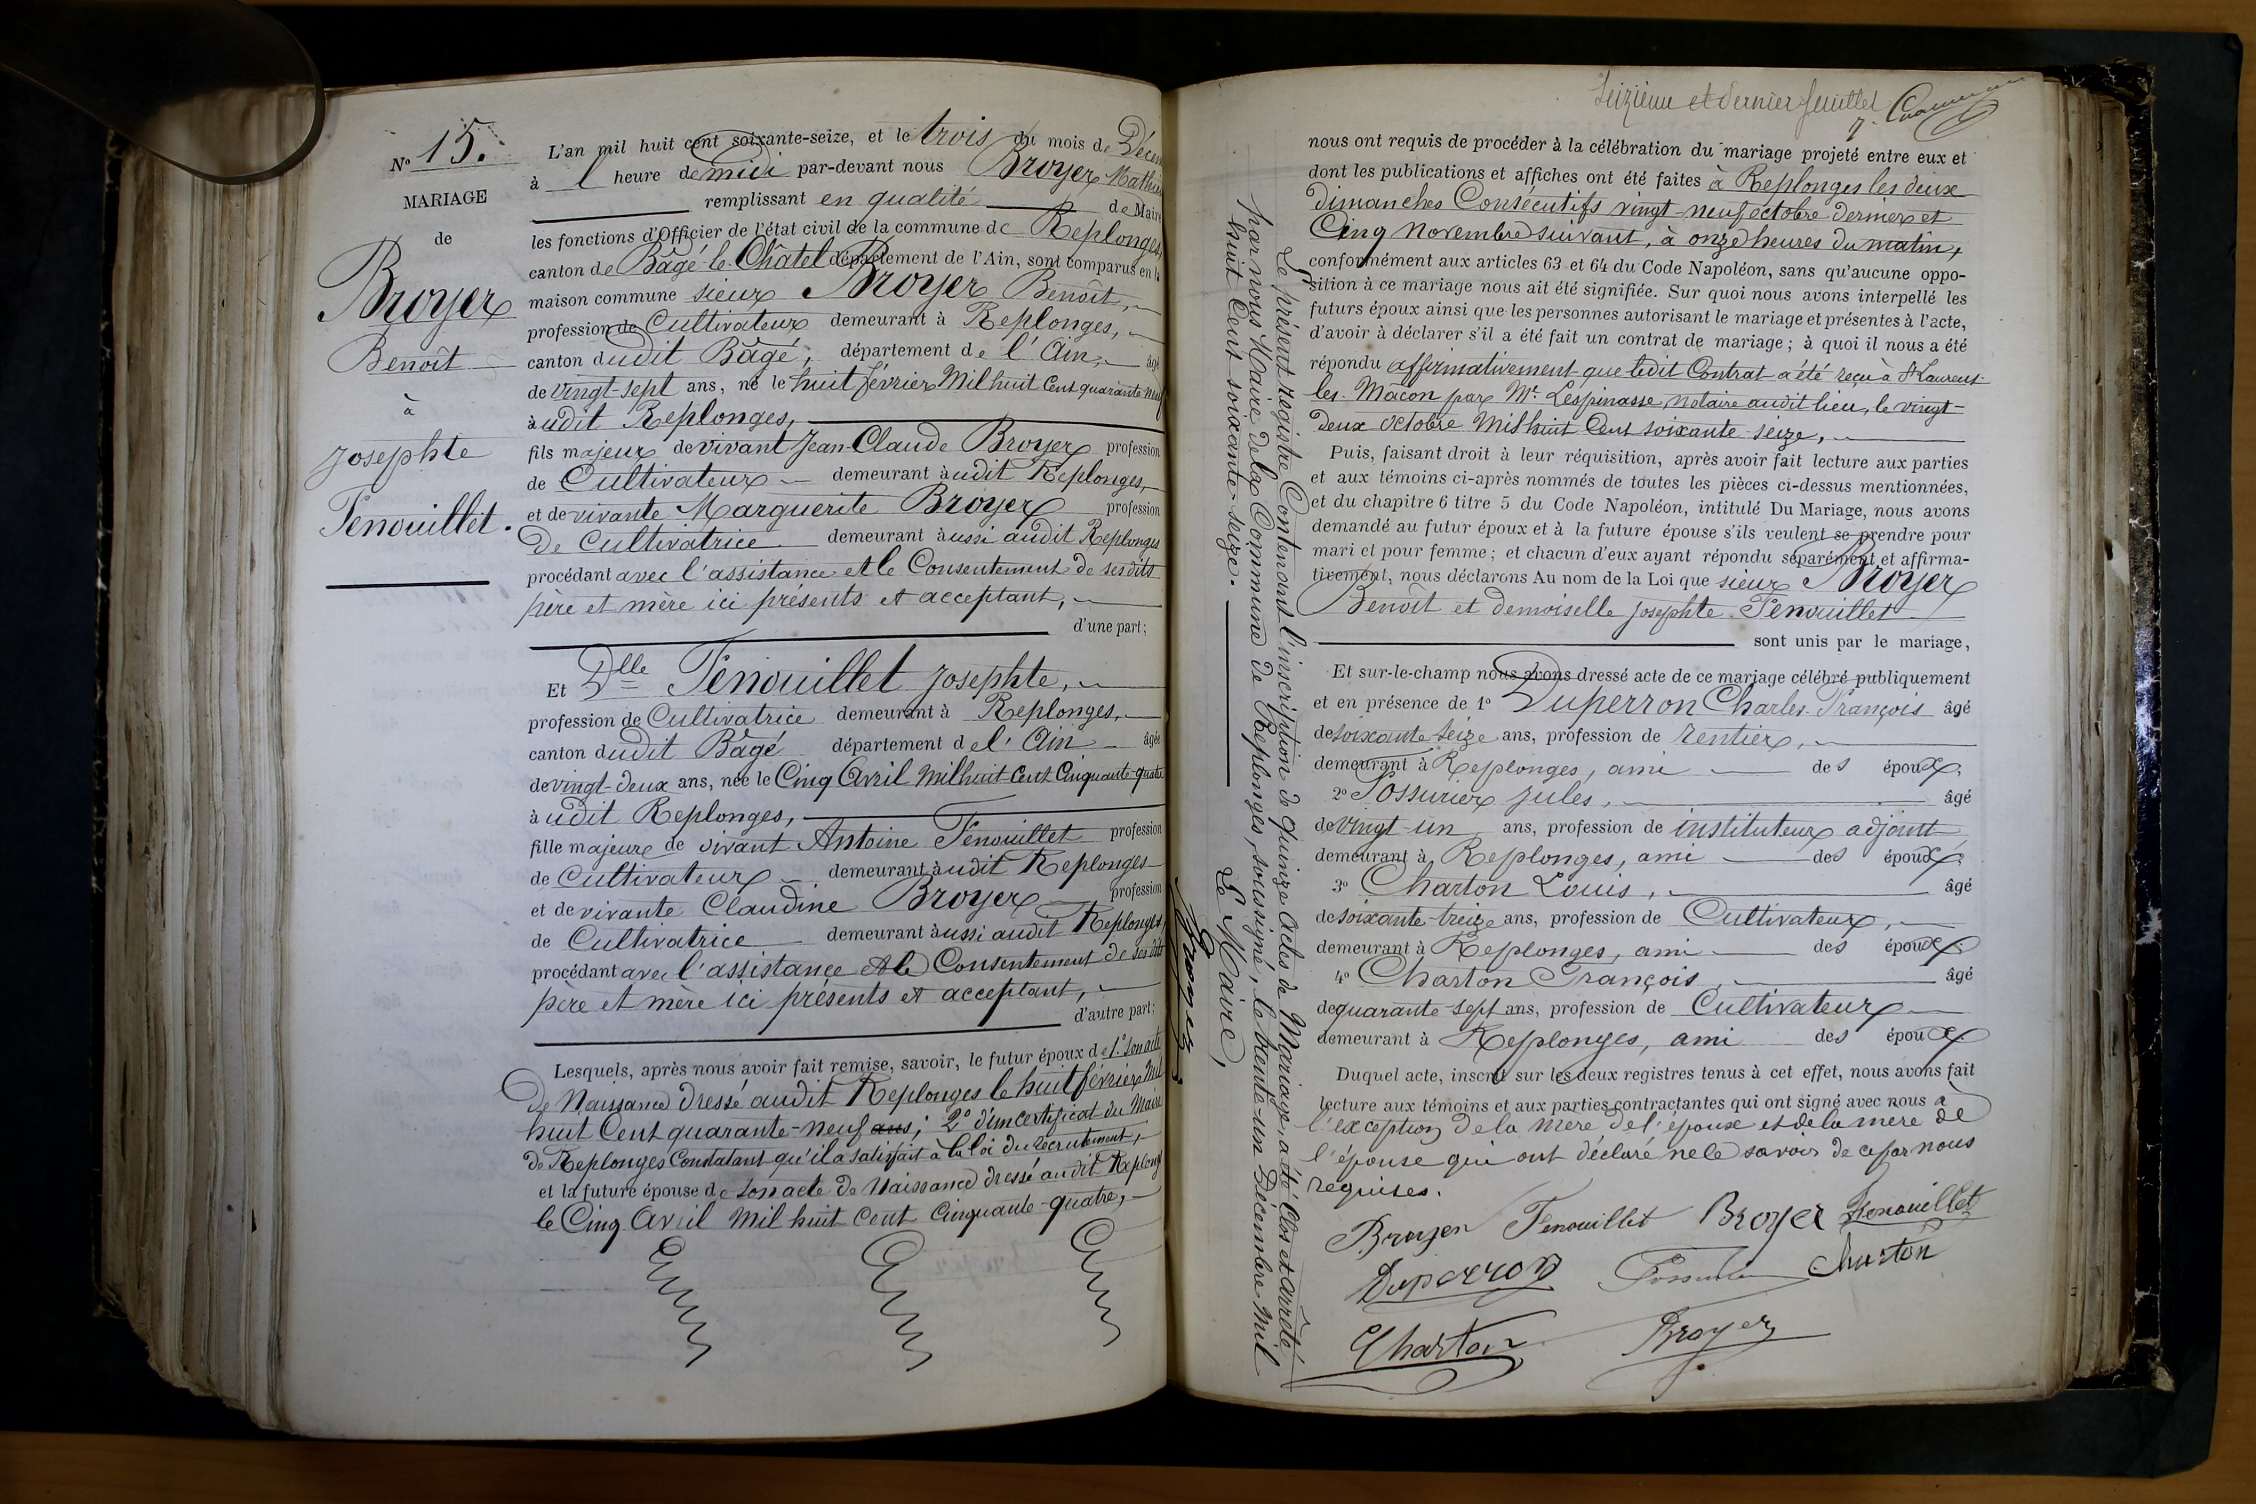 N° 15.
MARIAGE
de
Broyer
Benoît
à
Josephte
Fenouillet.
L'an mil huit cent soixante-seize, et le trois du mois de Décem
à 1 heure de midi par-devant nous Broyer Mathieu
remplissant en qualité de Maire
les fonctions d'Officier de l'état civil de la commune de Replonges,
canton de Bâgé-le-Châtel département de l'Ain, sont comparus en la
maison commune sieur Broyer Benoît,
profession de Cultivateur demeurant à Replonges,
canton dudit Bâgé, département de l'Ain, âgé
de vingt-sept ans, né le huit février Mil huit Cent quarante neuf
àudit Replonges,
fils majeur de vivant Jean-Claude Broyer profession
de Cultivateur demeurant àudit Replonges,
et de vivante Marguerite Broyer profession
De Cultivatrice demeurant àussi audit Replonges
procédant avec l'assistance et le Consentement de ses dits
père et mère ici présents et acceptant,
d'une part;
Et Dlle Fenouillet Josephte,
profession de Cultivatrice demeurant à Replonges,
canton dudit Bâgé département de l'Ain âgée
de vingt-deux ans, née le Cinq Avril Mil huit Cent Cinquante-quatre
àudit Replonges,
fille majeure de vivant Antoine Fenouillet profession
de Cultivateur demeurant àudit Replonges
et de vivante Claudine Broyer profession
de Cultivatrice demeurant àussi audit Replonges,
procédant avec l'assistance et le Consentement de ses dits
père et mère ici présents et acceptant,
d'autre part;
Lesquels, après nous avoir fait remise, savoir, le futur époux de 1° Son acte
de Naissance dressé audit Replonges le huit février Mil
huit Cent quarante-neuf ans; 2° d'un certificat du Maire
de Replonges Constatant qu'il a satisfait à la loi du recrutement,
et la future épouse de son acte de Naissance dressé audit Replonges
le Cinq Avril Mil huit Cent Cinquante-quatre,
Le présent registre Contenant l'inscription de quinze Actes de Mariage, a été Clos et arrêté
par nous Maire de la Commune de Replonges, soussigné, le trente-un Décembre Mil
huit Cent soixante-seize.
Le Maire,
Broyer
Seizième et dernier feuillet
nous ont requis de procéder à la célébration du mariage projeté entre eux et
dont les publications et affiches ont été faites à Replonges les deux
dimanches Consécutifs vingt-neuf octobre dernier et
Cinq Novembre suivant, à onze heures du matin,
conformément aux articles 63 et 64 du Code Napoléon, sans qu'aucune oppo-
sition à ce mariage nous ait été signifiée. Sur quoi nous avons interpellé les
futurs époux ainsi que les personnes autorisant le mariage et présentes à l'acte,
d'avoir à déclarer s'il a été fait un contrat de mariage; à quoi il nous a été
répondu affirmativement que ledit Contrat a été reçu à St Laurent-
les-Mâcon par Mr. Lespinasse, notaire audit lieu, le vingt-
deux octobre Mil huit Cent soixante-seize,
Puis, faisant droit à leur réquisition, après avoir fait lecture aux parties
et aux témoins ci-après nommés de toutes les pièces ci-dessus mentionnées,
et du chapitre 6 titre 5 du Code Napoléon, intitulé Du Mariage, nous avons
demandé au futur époux et à la future épouse s'ils veulent se prendre pour
mari et pour femme; et chacun d'eux ayant répondu séparément et affirma-
tivement, nous déclarons Au nom de la Loi que sieur Broyer
Benoît et demoiselle Josephte Fenouillet
sont unis par le mariage,
Et sur-le-champ nous avons dressé acte de ce mariage célébré publiquement
et en présence de 1° Duperron Charles-François âgé
de soixante-seize ans, profession de rentier,
demeurant à Replonges, ami des époux;
2° Fossurier Jules, âgé
de vingt-un ans, profession de instituteur adjoint
demeurant à Replonges, ami des époux;
3° Charton Louis, âgé
de soixante-treize ans, profession de Cultivateur,
demeurant à Replonges, ami des époux;
4° Charton François, âgé
de quarante-sept ans, profession de Cultivateur
demeurant à Replonges, ami des époux
Duquel acte, inscrit sur les deux registres tenus à cet effet, nous avons fait
lecture aux témoins et aux parties contractantes qui ont signé avec nous a
l'exception de la mère de l'époux et de la mère de
l'épouse qui ont déclaré ne le savoir de ce par nous
requises.
Broyer Fenouillet Broyer Fenouillet
Duperron Charton
Charton Broyer